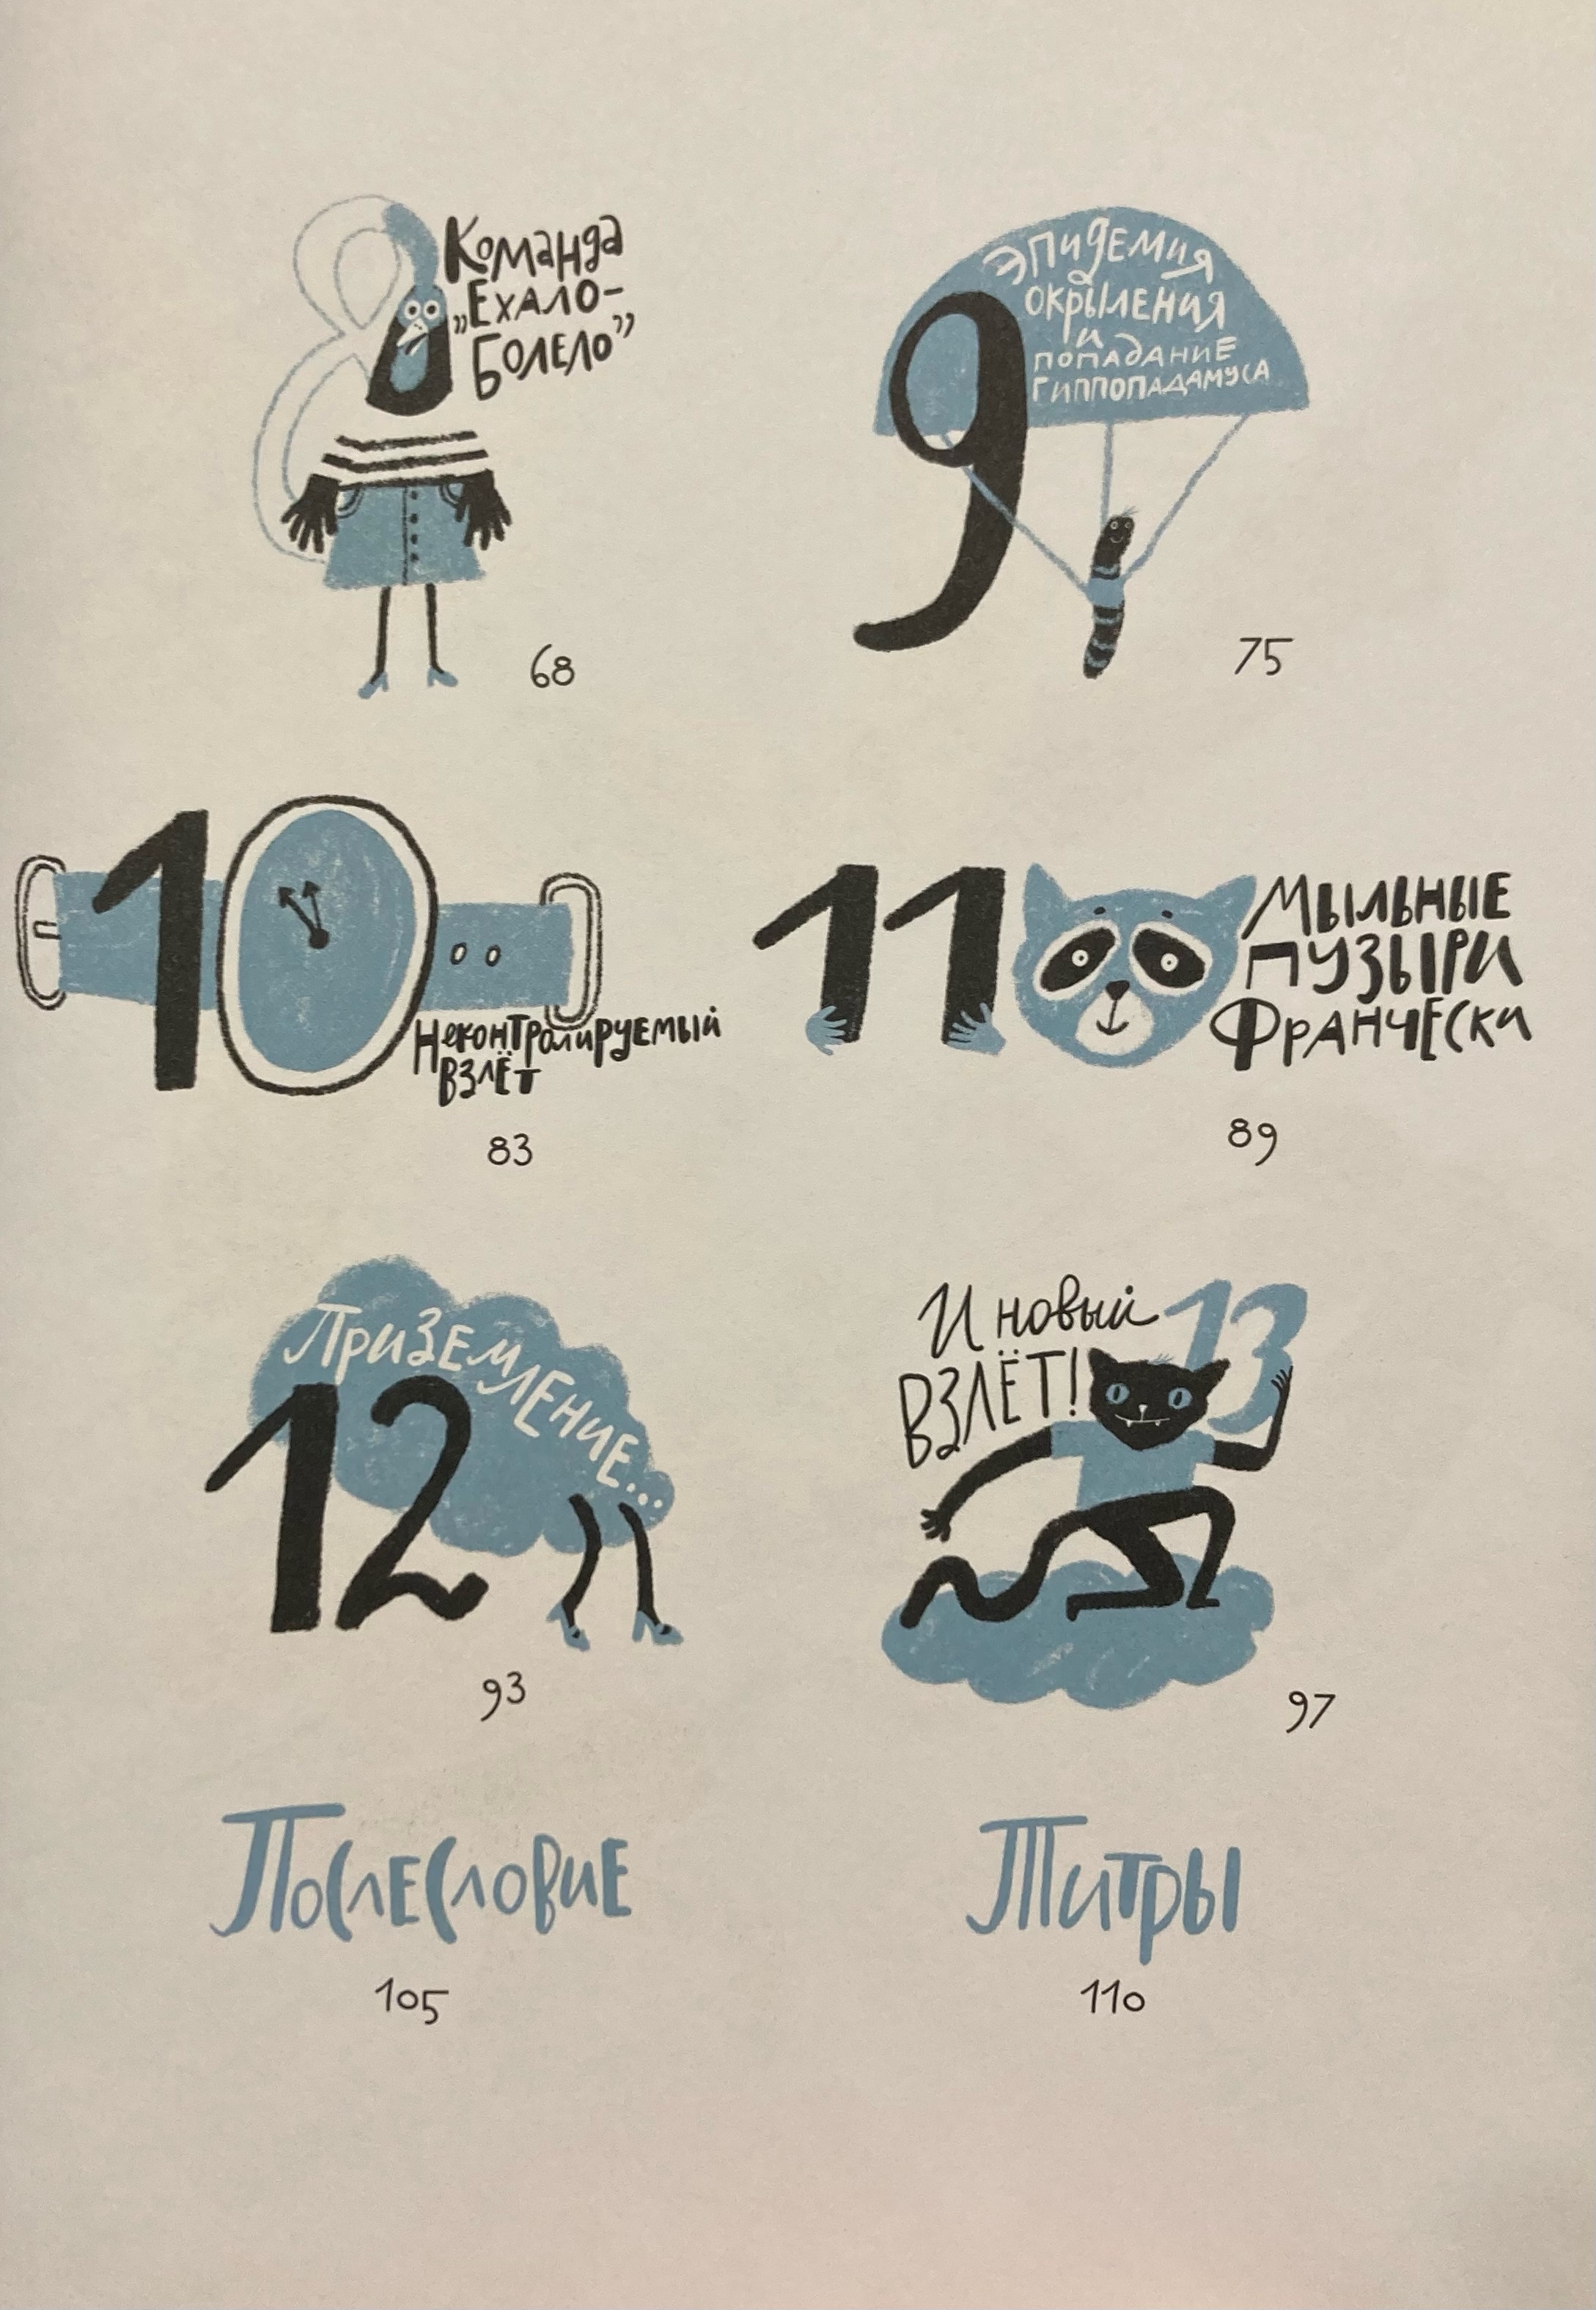 8
Команда
„Ехало-
Болело”
68
9
Эпидемия
окрыления
и
попадание
гиппопадамуса
75
10
Неконтролируемый
взлёт
83
11
Мыльные
пузыри
Франчески
89
12
Приземление...
93
И новый 13
взлёт!
97
Послесловие
105
Титры
110